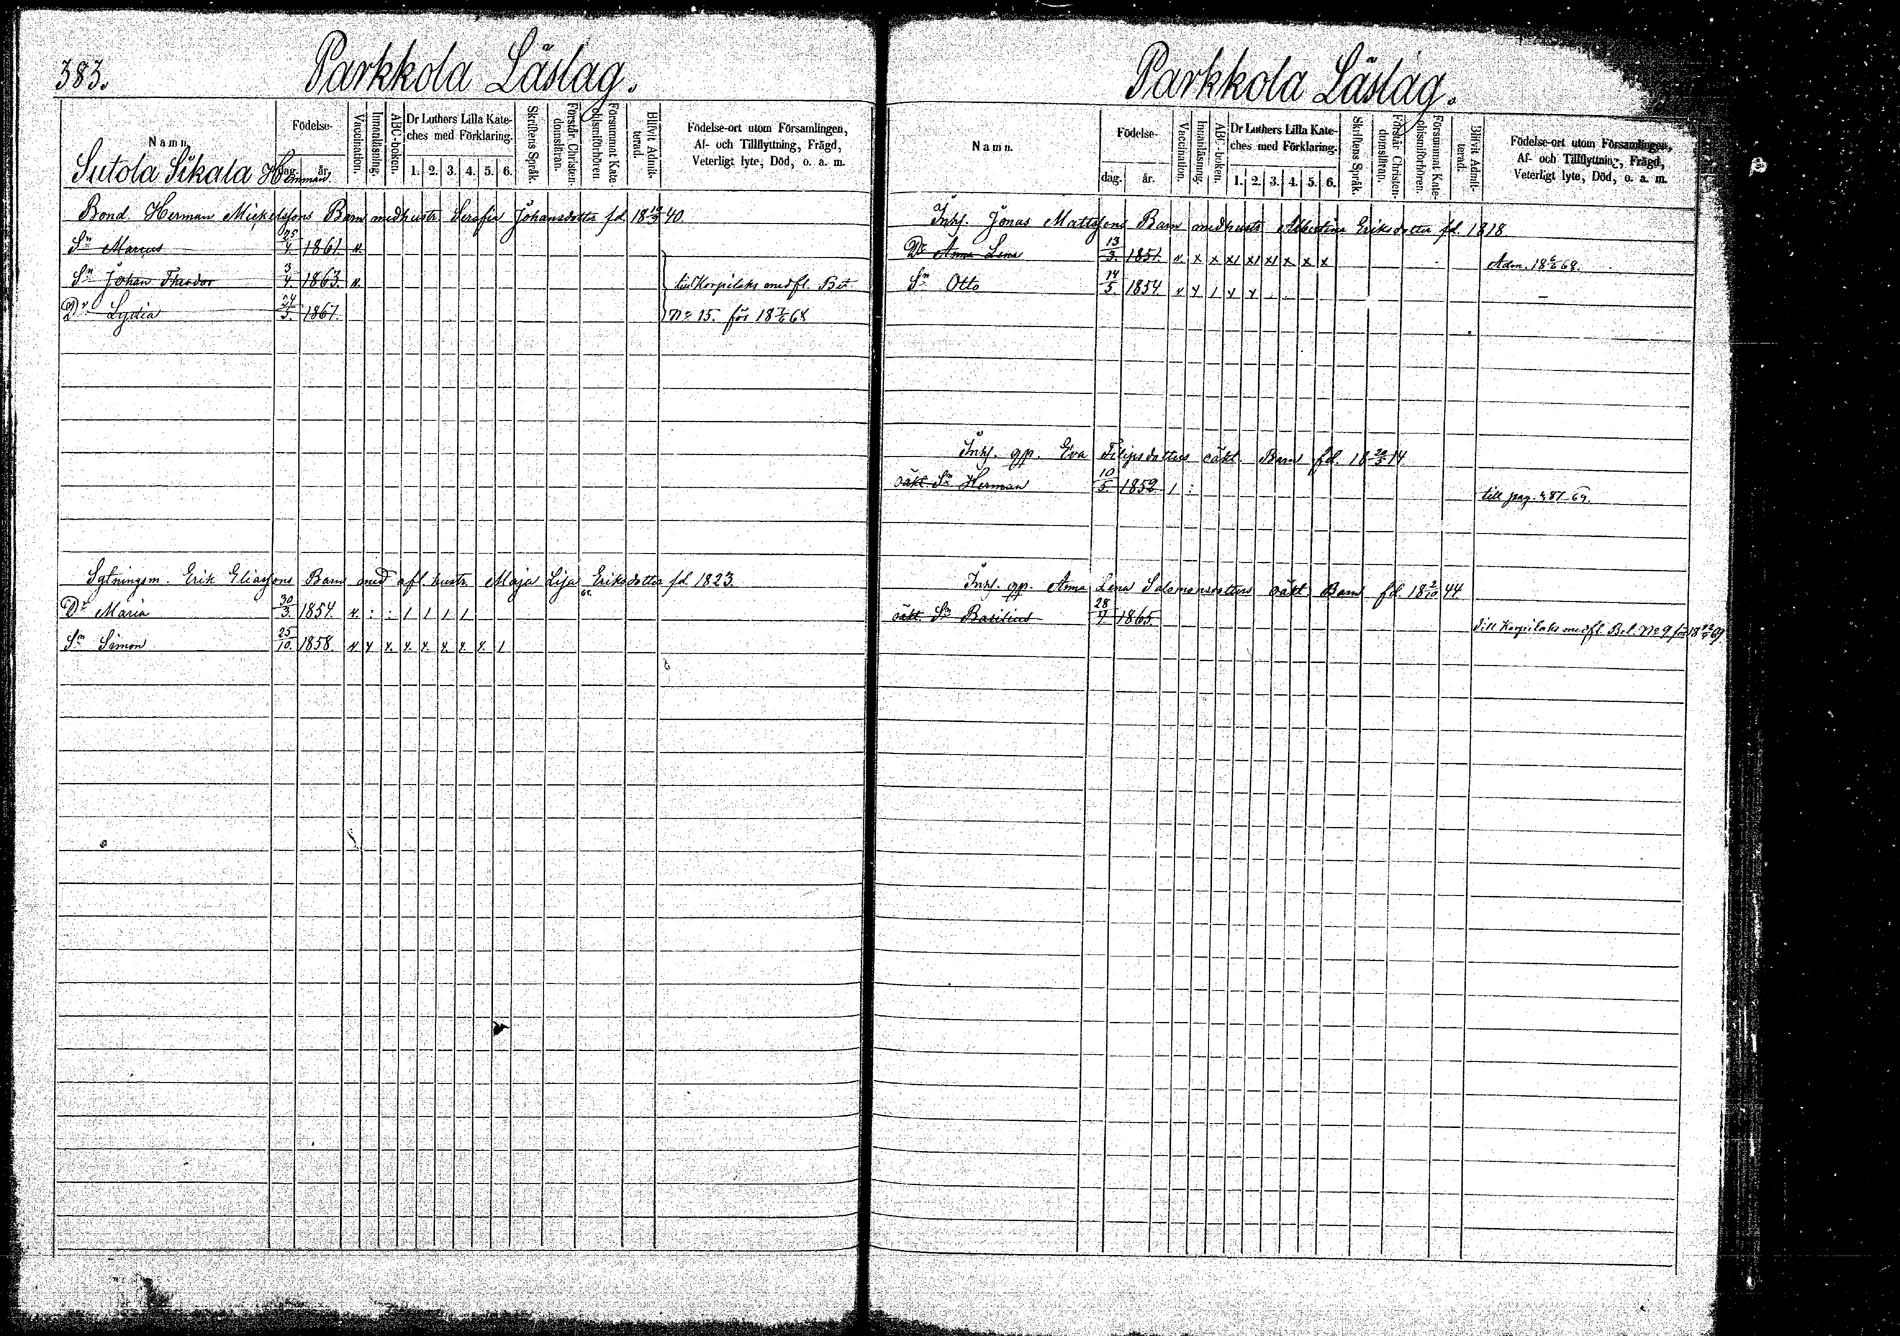 383.
Parkkola Läslag.
Namn.
Födelse-
dag. år.
Vaccination.
Innanläsning.
ABC-boken.
Dr Luthers Lilla Kate-
ches med Förklaring.
1. 2. 3. 4. 5. 6.
Skriftens Språk.
Förstår Christen-
domsläran.
Försummat Kate-
chismiförhören.
Blifvit Admit-
terad.
Födelse-ort utom Församlingen,
Af- och Tillflyttning, Frägd,
Veterligt lyte, Död, o. a. m.
Sutola Sikala Hemman.
Bond. Herman Mickelssons Barn med hustr. Serafia Johansdotter fd. 18 40.
Sn Marcus 25/4. 1861.
Sn Johan Theodor 3/4 1863. till Korpilaks med fl. Bet
Dr Lydia 24/5. 1867. No 15. för 18 68
Sytningsm. Erik Eliassons Barn med afl. hustr. Maja Lisa Eriksdotter fd. 1823.
Dr Maria 30/3. 1854. x : : 1 1 1 1
Sn Simon 25/10. 1858. x x x. x. x. x. x. x. 1
Parkkola Läslag.
Namn.
Födelse-
dag. år.
Vaccination.
Innanläsning.
ABC-boken.
Dr Luthers Lilla Kate-
ches med Förklaring.
1. 2. 3. 4. 5. 6.
Skriftens Språk.
Förstår Christen-
domsläran.
Försummat Kate-
chismiförhören.
Blifvit Admit-
terad.
Födelse-ort utom Församlingen,
Af- och Tillflyttning, Frägd,
Veterligt lyte, Död, o. a. m.
Inhs. Jonas Mattssons Barn med hustr. Albertina Eriksdotter fd. 1818
Dr Anna Lena 13/3. 1851. x x x x x x x x x Adm. 18 68.
Sn Otto 14/5. 1854 x x 1 x x —
Inhs. gp. Eva Filipsdotters oäkt. Barn fd. 18 14
oäkt. Sn Herman 10/5. 1852. 1 : till pag. 387-69.
Inhs. gp. Anna Lena Salomonsdotters oäkt Barn fd. 18 2/10 44
oäkt. Sn Basilius 28/4 1865. Till Korpilaks med fl. Bet. No 9 för 18 69.